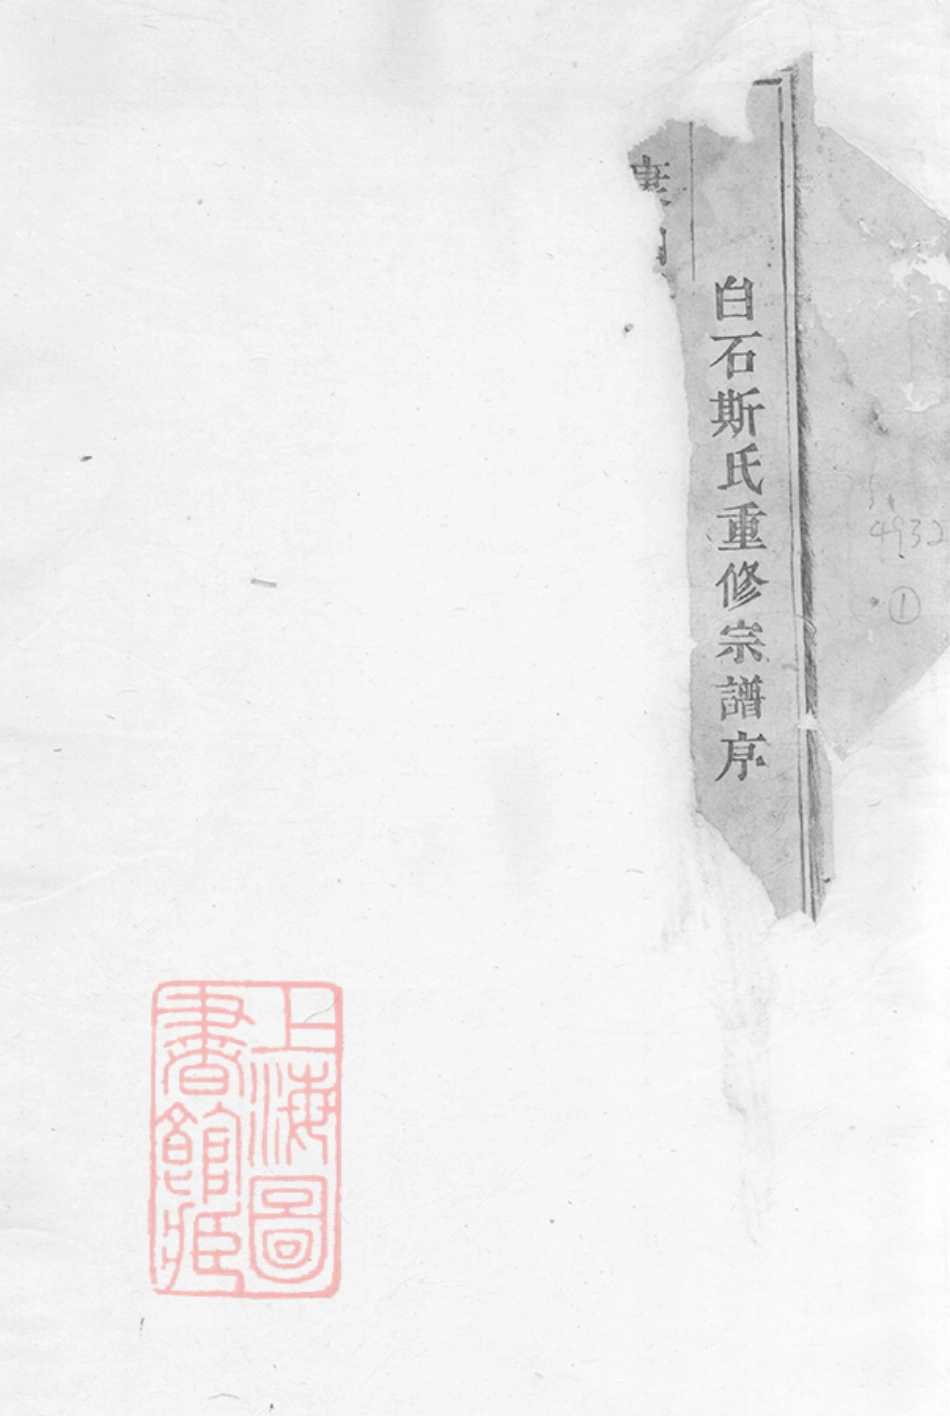 白石斯氏重修宗譜序
4932
①
上海圖
書館藏